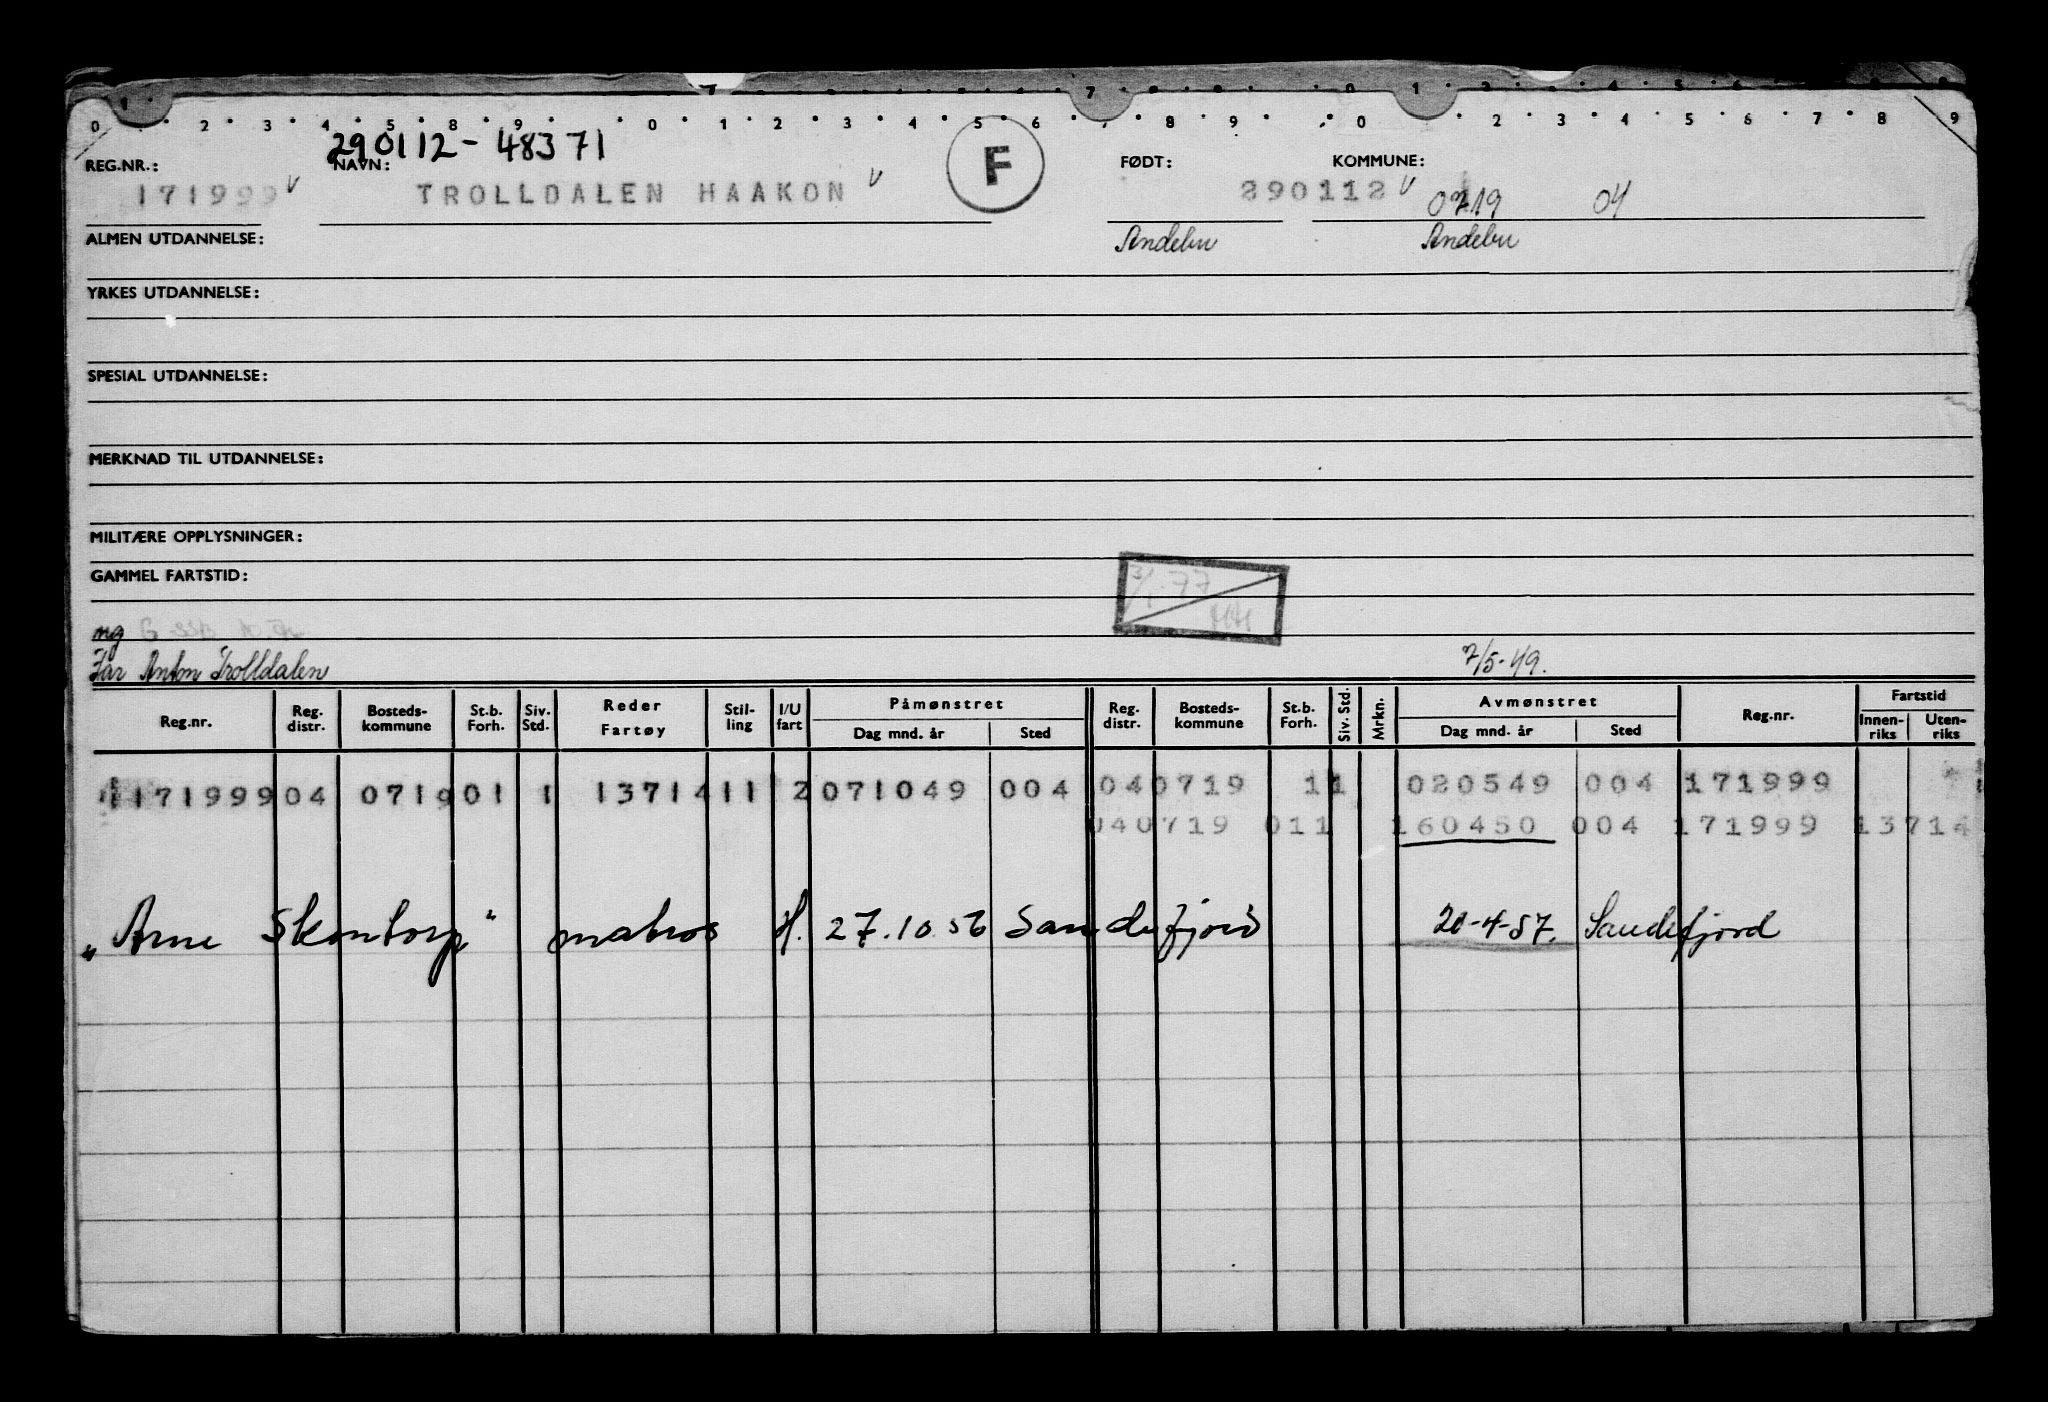 7 2 3 4 5 6 7 8 9 0 1 2 3 4 5 6 7 8 9
0 2 3 4 5 8 9 0 1 2 3 4 5 6 7 8 9 0 2 3 4 5 6 7 8 9
290112-48371
REG.NR.: NAVN: F FØDT: KOMMUNE:
171999 v TROLLDALEN HAAKON v 290112 v 0719 04
ALMEN UTDANNELSE: Andebu Andebu
YRKES UTDANNELSE:
SPESIAL UTDANNELSE:
MERKNAD TIL UTDANNELSE:
MILITÆRE OPPLYSNINGER:
GAMMEL FARTSTID:
3/1.77
HH
ng
Far Anton Trolldalen 7/5-49.
Reg.nr. Reg. distr. Bosteds-kommune St.b. Forh. Siv. Std. Reder Fartøy Stil-ling I/U fart Påmønstret Dag mnd. år Sted Reg. distr. Bosteds-kommune St.b. Forh. Siv. Std. Mrkn. Avmønstret Dag mnd. år Sted Reg.nr. Fartstid Innen-riks Uten-riks
1171999 04 0719 01 1 13714 11 2 071049 004 040719 11 020549 004 171999
040719 011 160450 004 171999 13714
„Arne Skontorp" matros H. 27.10.56 Sandefjord 20-4-57. Sandefjord